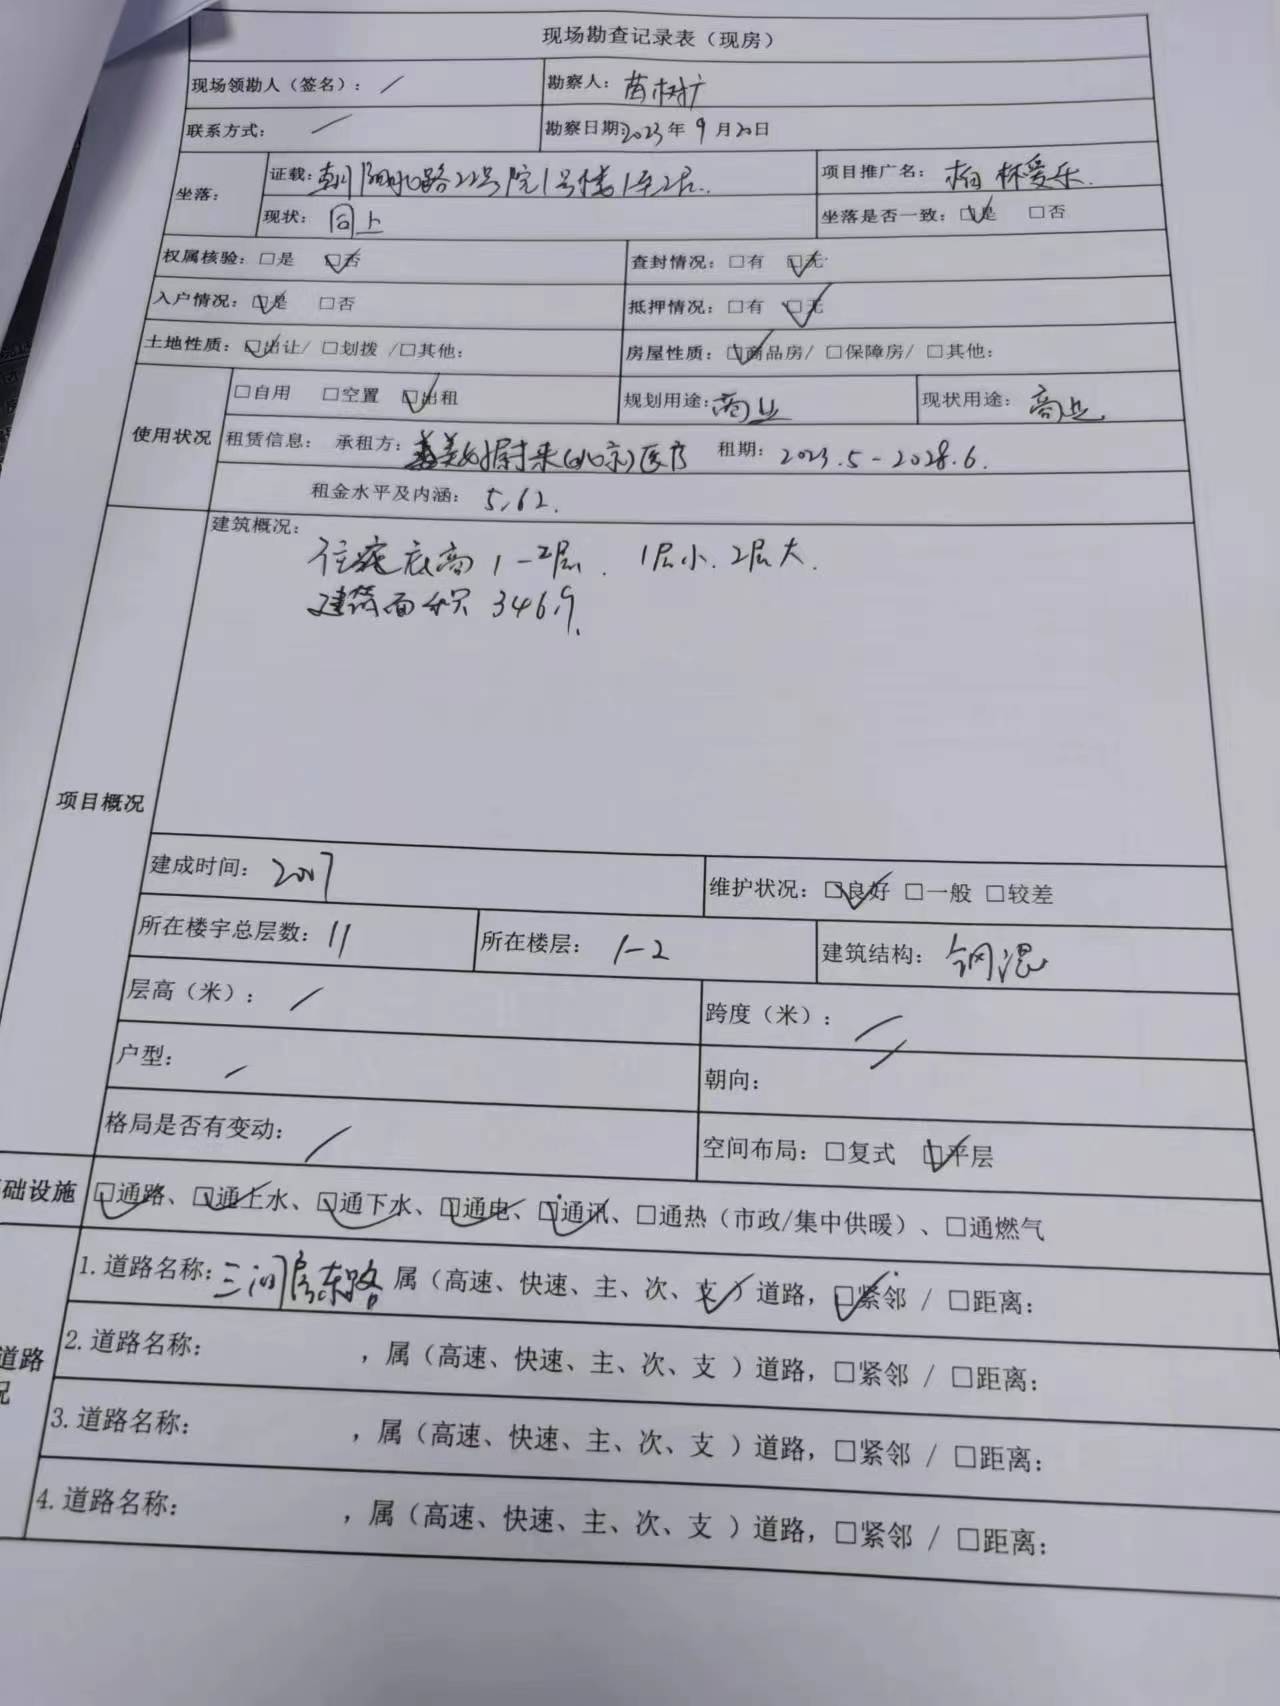 现场勘查记录表（现房）
现场领勘人（签名）： / 勘察人：苗树广
联系方式： / 勘察日期：2023年9月20日
坐落： 证载：朝阳北路22号院1号楼1至2层 项目推广名：柏林爱乐
现状：同上 坐落是否一致：☑是 □否
权属核验：□是 ☑否 查封情况：□有 ☑无
入户情况：☑是 □否 抵押情况：□有 ☑无
土地性质：☑出让/ □划拨 /□其他： 房屋性质：☑商品房/ □保障房/ □其他：
使用状况 □自用 □空置 ☑出租 规划用途：商业 现状用途：商业
租赁信息： 承租方：来(北京)医疗 租期：2023.5-2028.6.
租金水平及内涵：5.62.
项目概况 建筑概况：
住宅底商1-2层. 1层小.2层大.
建筑面积 346.9.
建成时间：2007 维护状况：☑良好 □一般 □较差
所在楼宇总层数：11 所在楼层：1-2 建筑结构：钢混
层高（米）： / 跨度（米）： /
户型： / 朝向： /
格局是否有变动： / 空间布局：□复式 ☑平层
础设施 ☑通路、☑通上水、☑通下水、☑通电、☑通讯、□通热（市政/集中供暖）、□通燃气
道路 1.道路名称：三间房东路 属（高速、快速、主、次、支✓）道路，☑紧邻 / □距离：
2.道路名称： ，属（高速、快速、主、次、支 ）道路，□紧邻 / □距离：
3.道路名称： ，属（高速、快速、主、次、支 ）道路，□紧邻 / □距离：
4.道路名称： ，属（高速、快速、主、次、支 ）道路，□紧邻 / □距离：